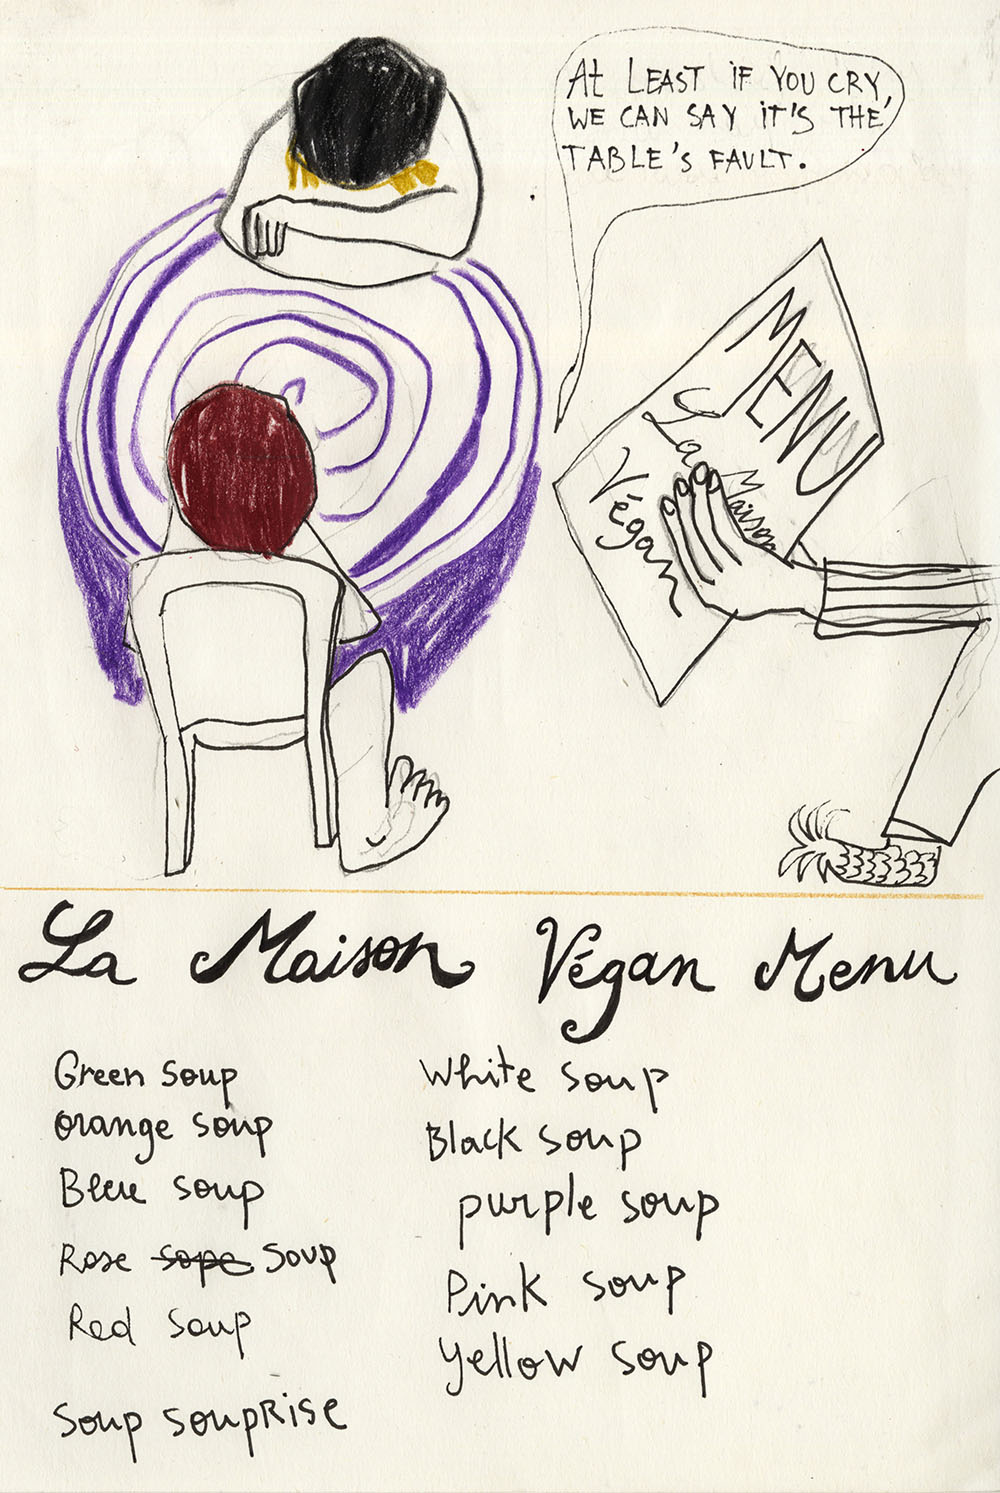 At LEAST iF YOU CRY,
WE CAN SAY iT'S THE
TABLE'S FAULT.
MENU
La Maison
Végan
La Maison Végan Menu
Green soup
orange soup
Bleue soup
Rose sope soup
Red soup
soup soupRise
White soup
Black soup
purple soup
Pink soup
yellow soup